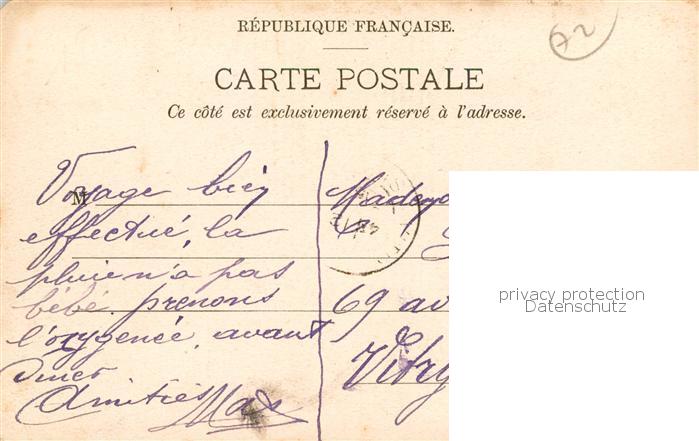 A2
RÉPUBLIQUE FRANÇAISE.
CARTE POSTALE
Ce côté est exclusivement réservé à l'adresse.
M
Voyage bien
effectué, la
pluie n'a pas
bébé. prenons
l'oxygenée, avant
diner
Amitiés Max
69 av
Vitry
privacy protection
Datenschutz